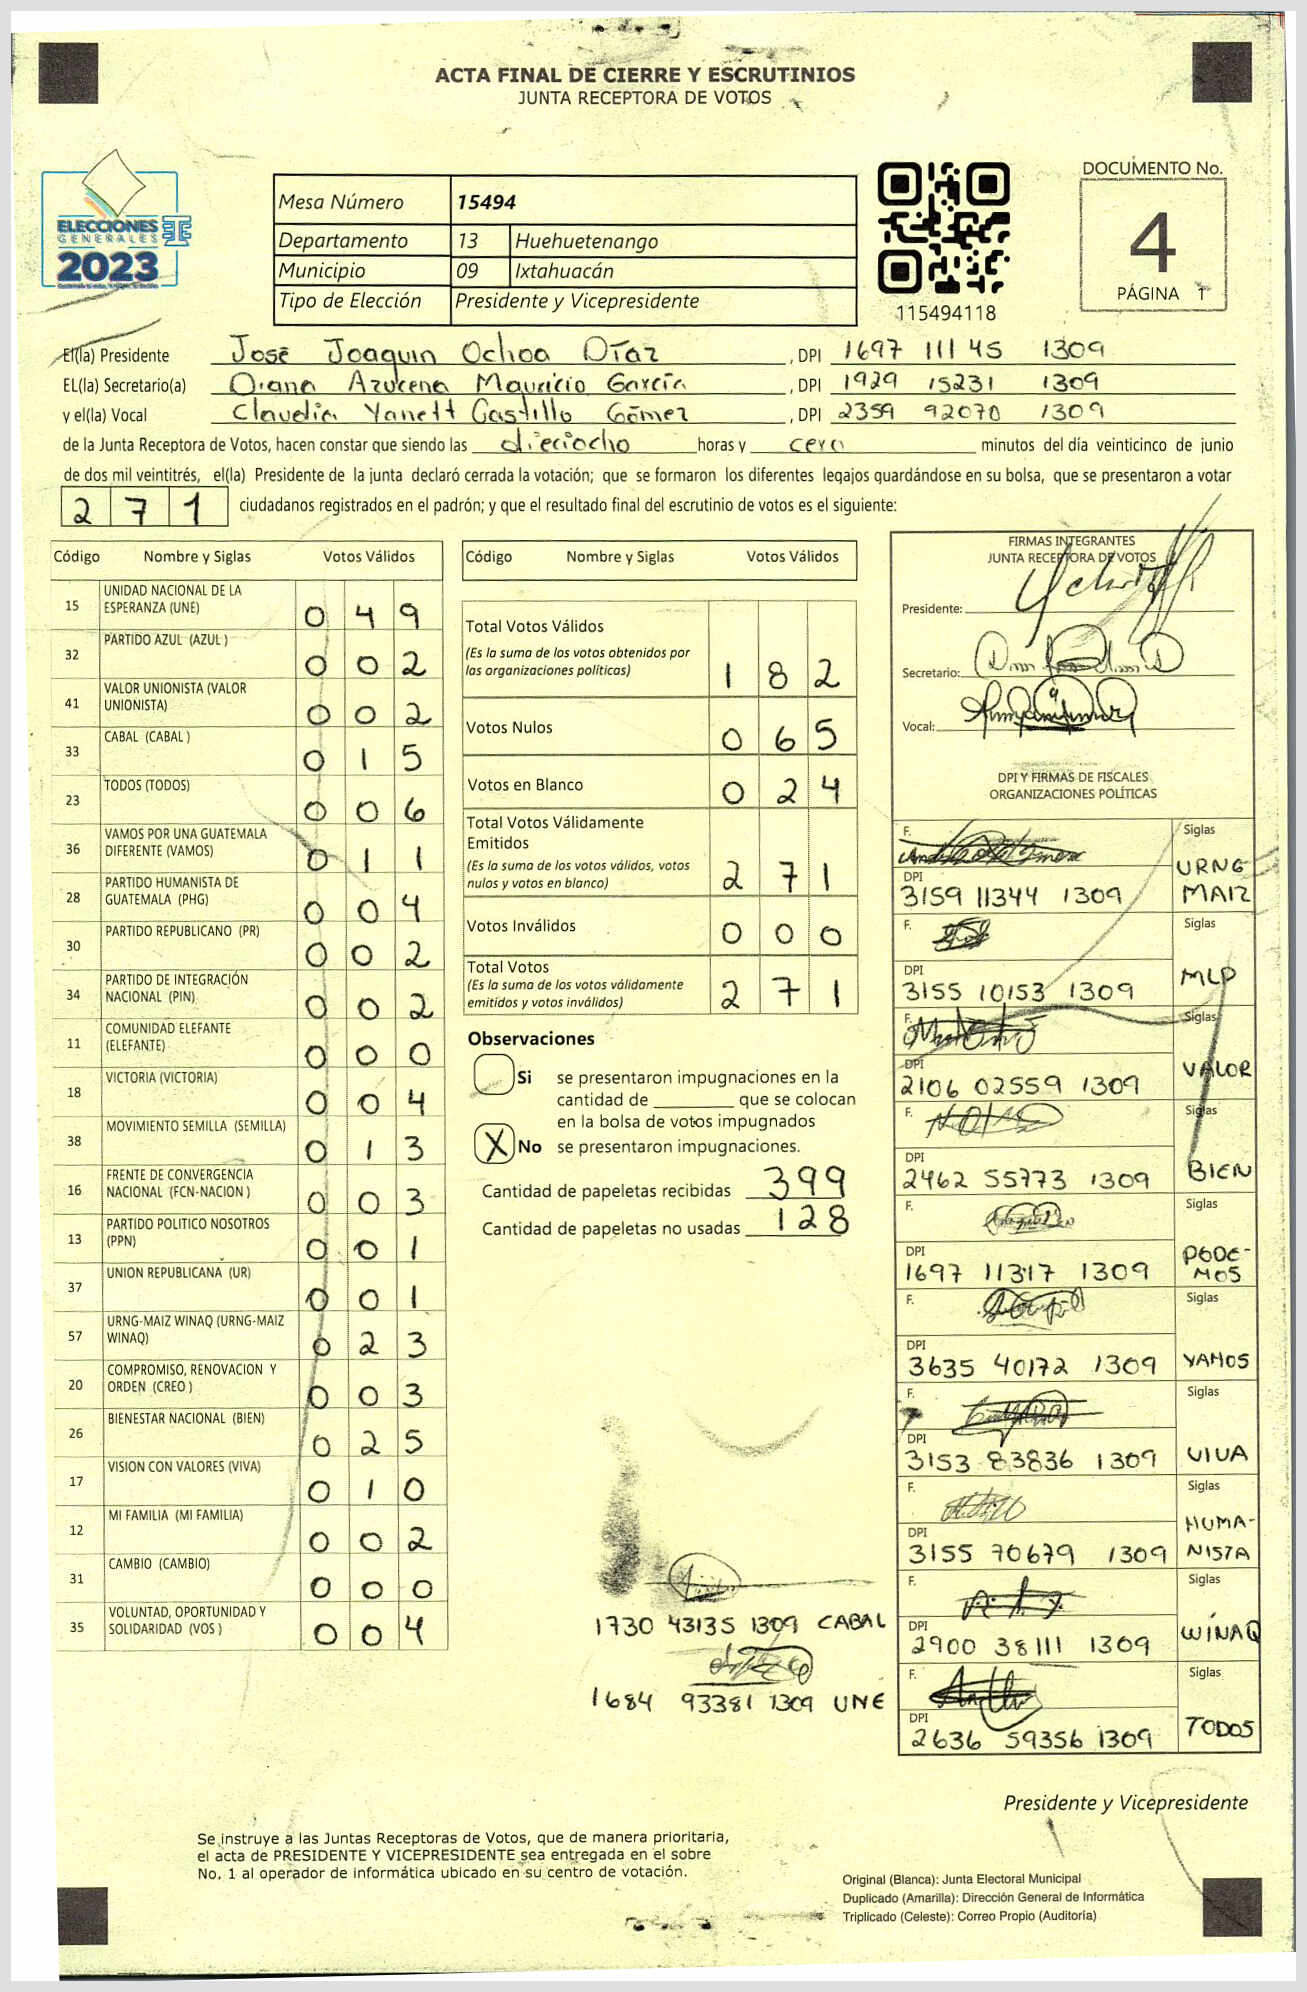 ACTA FINAL DE CIERRE Y ESCRUTINIOS
JUNTA RECEPTORA DE VOTOS
ELECCIONES
GENERALES
2023
Mesa Número 15494
Departamento 13 Huehuetenango
Municipio 09 Ixtahuacán
Tipo de Elección Presidente y Vicepresidente
115494118
DOCUMENTO No.
4
PÁGINA 1
El(la) Presidente José Joaquin Ochoa Díaz , DPI 1697 11145 1309
EL(la) Secretario(a) Diana Azucena Mauricio García , DPI 1929 15231 1309
y el(la) Vocal Claudia Yanett Castillo Gómez , DPI 2359 92070 1309
de la Junta Receptora de Votos, hacen constar que siendo las dieciocho horas y cero minutos del día veinticinco de junio
de dos mil veintitrés, el(la) Presidente de la junta declaró cerrada la votación; que se formaron los diferentes legajos guardándose en su bolsa, que se presentaron a votar
271 ciudadanos registrados en el padrón; y que el resultado final del escrutinio de votos es el siguiente:
Código Nombre y Siglas Votos Válidos
15 UNIDAD NACIONAL DE LA
ESPERANZA (UNE) 049
32 PARTIDO AZUL (AZUL ) 002
41 VALOR UNIONISTA (VALOR
UNIONISTA) 002
33 CABAL (CABAL ) 015
23 TODOS (TODOS) 006
36 VAMOS POR UNA GUATEMALA
DIFERENTE (VAMOS) 011
28 PARTIDO HUMANISTA DE
GUATEMALA (PHG) 004
30 PARTIDO REPUBLICANO (PR) 002
34 PARTIDO DE INTEGRACIÓN
NACIONAL (PIN) 002
11 COMUNIDAD ELEFANTE
(ELEFANTE) 000
18 VICTORIA (VICTORIA) 004
38 MOVIMIENTO SEMILLA (SEMILLA) 013
16 FRENTE DE CONVERGENCIA
NACIONAL (FCN-NACION ) 003
13 PARTIDO POLITICO NOSOTROS
(PPN) 001
37 UNION REPUBLICANA (UR) 001
57 URNG-MAIZ WINAQ (URNG-MAIZ
WINAQ) 023
20 COMPROMISO, RENOVACION Y
ORDEN (CREO ) 003
26 BIENESTAR NACIONAL (BIEN) 025
17 VISION CON VALORES (VIVA) 010
12 MI FAMILIA (MI FAMILIA) 002
31 CAMBIO (CAMBIO) 000
35 VOLUNTAD, OPORTUNIDAD Y
SOLIDARIDAD (VOS ) 004
Código Nombre y Siglas Votos Válidos
Total Votos Válidos
(Es la suma de los votos obtenidos por
las organizaciones políticas) 182
Votos Nulos 065
Votos en Blanco 024
Total Votos Válidamente
Emitidos
(Es la suma de los votos válidos, votos
nulos y votos en blanco) 271
Votos Inválidos 000
Total Votos
(Es la suma de los votos válidamente
emitidos y votos inválidos) 271
Observaciones
Si se presentaron impugnaciones en la
cantidad de ________ que se colocan
en la bolsa de votos impugnados
X No se presentaron impugnaciones.
Cantidad de papeletas recibidas 399
Cantidad de papeletas no usadas 128
1730 43135 1309 CABAL
1684 93381 1309 UNE
FIRMAS INTEGRANTES
JUNTA RECEPTORA DE VOTOS
Presidente:
Secretario:
Vocal:
DPI Y FIRMAS DE FISCALES
ORGANIZACIONES POLÍTICAS
F. Siglas
DPI
3159 11344 1309 URNG
MAIZ
F. Siglas
DPI
3155 10153 1309 MLP
F. Siglas
DPI
2106 02559 1309 VALOR
F. Siglas
DPI
2462 55773 1309 BIEN
F. Siglas
DPI
1697 11317 1309 PODE-
MOS
F. Siglas
DPI
3635 40172 1309 VAMOS
F. Siglas
DPI
3153 83836 1309 VIVA
F. Siglas
DPI
3155 70679 1309 HUMA-
NISTA
F. Siglas
DPI
2900 38111 1309 WINAQ
F. Siglas
DPI
2636 59356 1309 TODOS
Presidente y Vicepresidente
Se instruye a las Juntas Receptoras de Votos, que de manera prioritaria,
el acta de PRESIDENTE Y VICEPRESIDENTE sea entregada en el sobre
No. 1 al operador de informática ubicado en su centro de votación.
Original (Blanca): Junta Electoral Municipal
Duplicado (Amarilla): Dirección General de Informática
Triplicado (Celeste): Correo Propio (Auditoría)